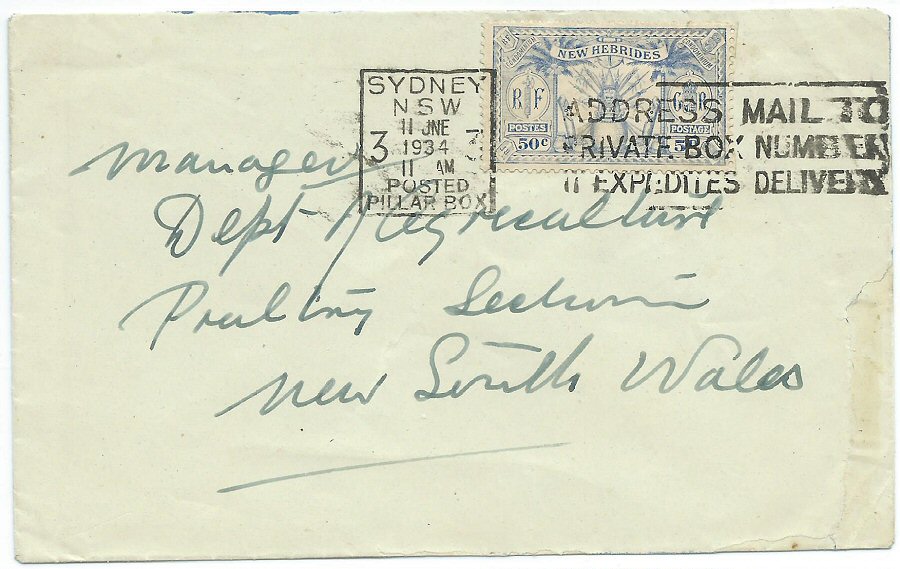 NEW HEBRIDES
R F
G R
POSTES
POSTAGE
50c
SYDNEY
NSW
11 JNE
3 1934 3
11 AM
POSTED
PILLAR BOX
ADDRESS MAIL TO
PRIVATE BOX NUMBER
IT EXPEDITES DELIVERY
Manager
Dept Agriculture
Poultry Section
New South Wales